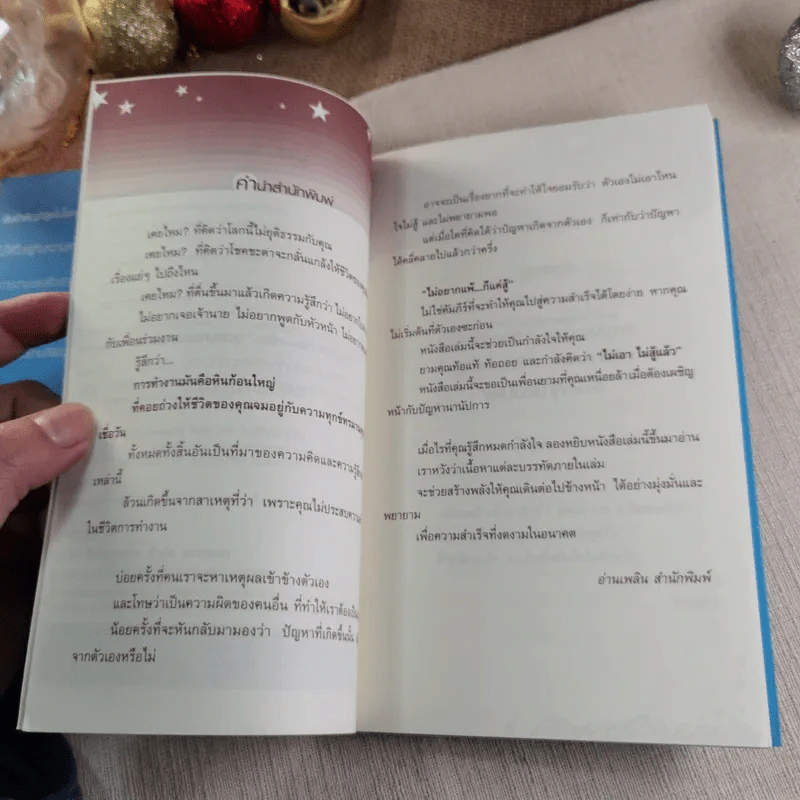 คำนำสำนักพิมพ์
เคยไหม? ที่คิดว่าโลกนี้ไม่ยุติธรรมกับคุณ
เคยไหม? ที่คิดว่าโชคชะตาจะกลั่นแกล้งให้ชีวิต
เรื่องแย่ๆ ไปถึงไหน
เคยไหม? ที่ตื่นขึ้นมาแล้วเกิดความรู้สึกว่า ไม่อยาก
ไม่อยากเจอเจ้านาย ไม่อยากพูดกับหัวหน้า ไม่อยาก
กับเพื่อนร่วมงาน
รู้สึกว่า...
การทำงานมันคือหินก้อนใหญ่
ที่คอยถ่วงให้ชีวิตของคุณจมอยู่กับความทุกข์ทรมาน
เชื่อวัน
ทั้งหมดทั้งสิ้นอันเป็นที่มาของความคิดและความรู้สึก
เหล่านี้
ล้วนเกิดขึ้นจากสาเหตุที่ว่า เพราะคุณไม่ประสบความ
ในชีวิตการทำงาน
บ่อยครั้งที่คนเราจะหาเหตุผลเข้าข้างตัวเอง
และโทษว่าเป็นความผิดของคนอื่น ที่ทำให้เราต้อง
น้อยครั้งที่จะหันกลับมามองว่า ปัญหาที่เกิดขึ้นนั้น
จากตัวเองหรือไม่
อาจจะเป็นเรื่องยากที่จะทำให้ใจยอมรับว่า ตัวเองไม่เอาไหน
ใจไม่สู้ และไม่พยายามพอ
แต่เมื่อใดที่คิดได้ว่าปัญหาเกิดจากตัวเอง ก็เท่ากับว่าปัญหา
ได้คลี่คลายไปแล้วกว่าครึ่ง
"ไม่อยากแพ้...ก็แค่สู้"
ไม่ใช่คัมภีร์ที่จะทำให้คุณไปสู่ความสำเร็จได้โดยง่าย หากคุณ
ไม่เริ่มต้นที่ตัวเองซะก่อน
หนังสือเล่มนี้จะช่วยเป็นกำลังใจให้คุณ
ยามคุณท้อแท้ ท้อถอย และกำลังคิดว่า "ไม่เอา ไม่สู้แล้ว"
หนังสือเล่มนี้จะขอเป็นเพื่อนยามที่คุณเหนื่อยล้าเมื่อต้องเผชิญ
หน้ากับปัญหานานัปการ
เมื่อไรที่คุณรู้สึกหมดกำลังใจ ลองหยิบหนังสือเล่มนี้ขึ้นมาอ่าน
เราหวังว่าเนื้อหาแต่ละบรรทัดภายในเล่ม
จะช่วยสร้างพลังให้คุณเดินต่อไปข้างหน้า ได้อย่างมุ่งมั่นและ
พยายาม
เพื่อความสำเร็จที่งดงามในอนาคต
อ่านเพลิน สำนักพิมพ์